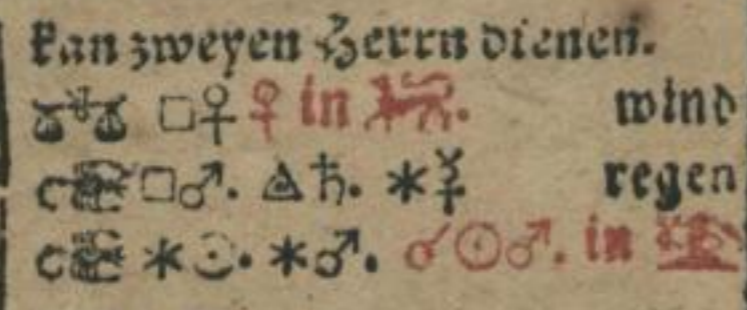 kan zweyen Herrn dienen.
♎ □♀ ♀ in ♌. wind
□♂. △♄. ⚹☿ regen
⚹☉. ⚹♂. ☌☉♂. in